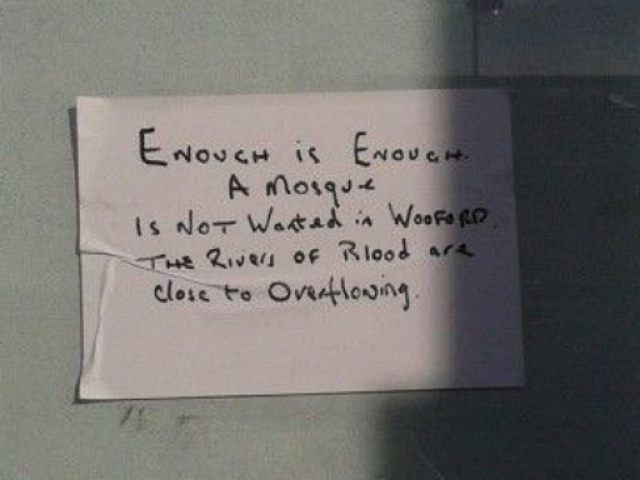 ENOUGH is ENOUGH.
A Mosque
Is NOT Wanted in WOOFORD.
THE Rivers OF Blood are
Close to Overflowing.